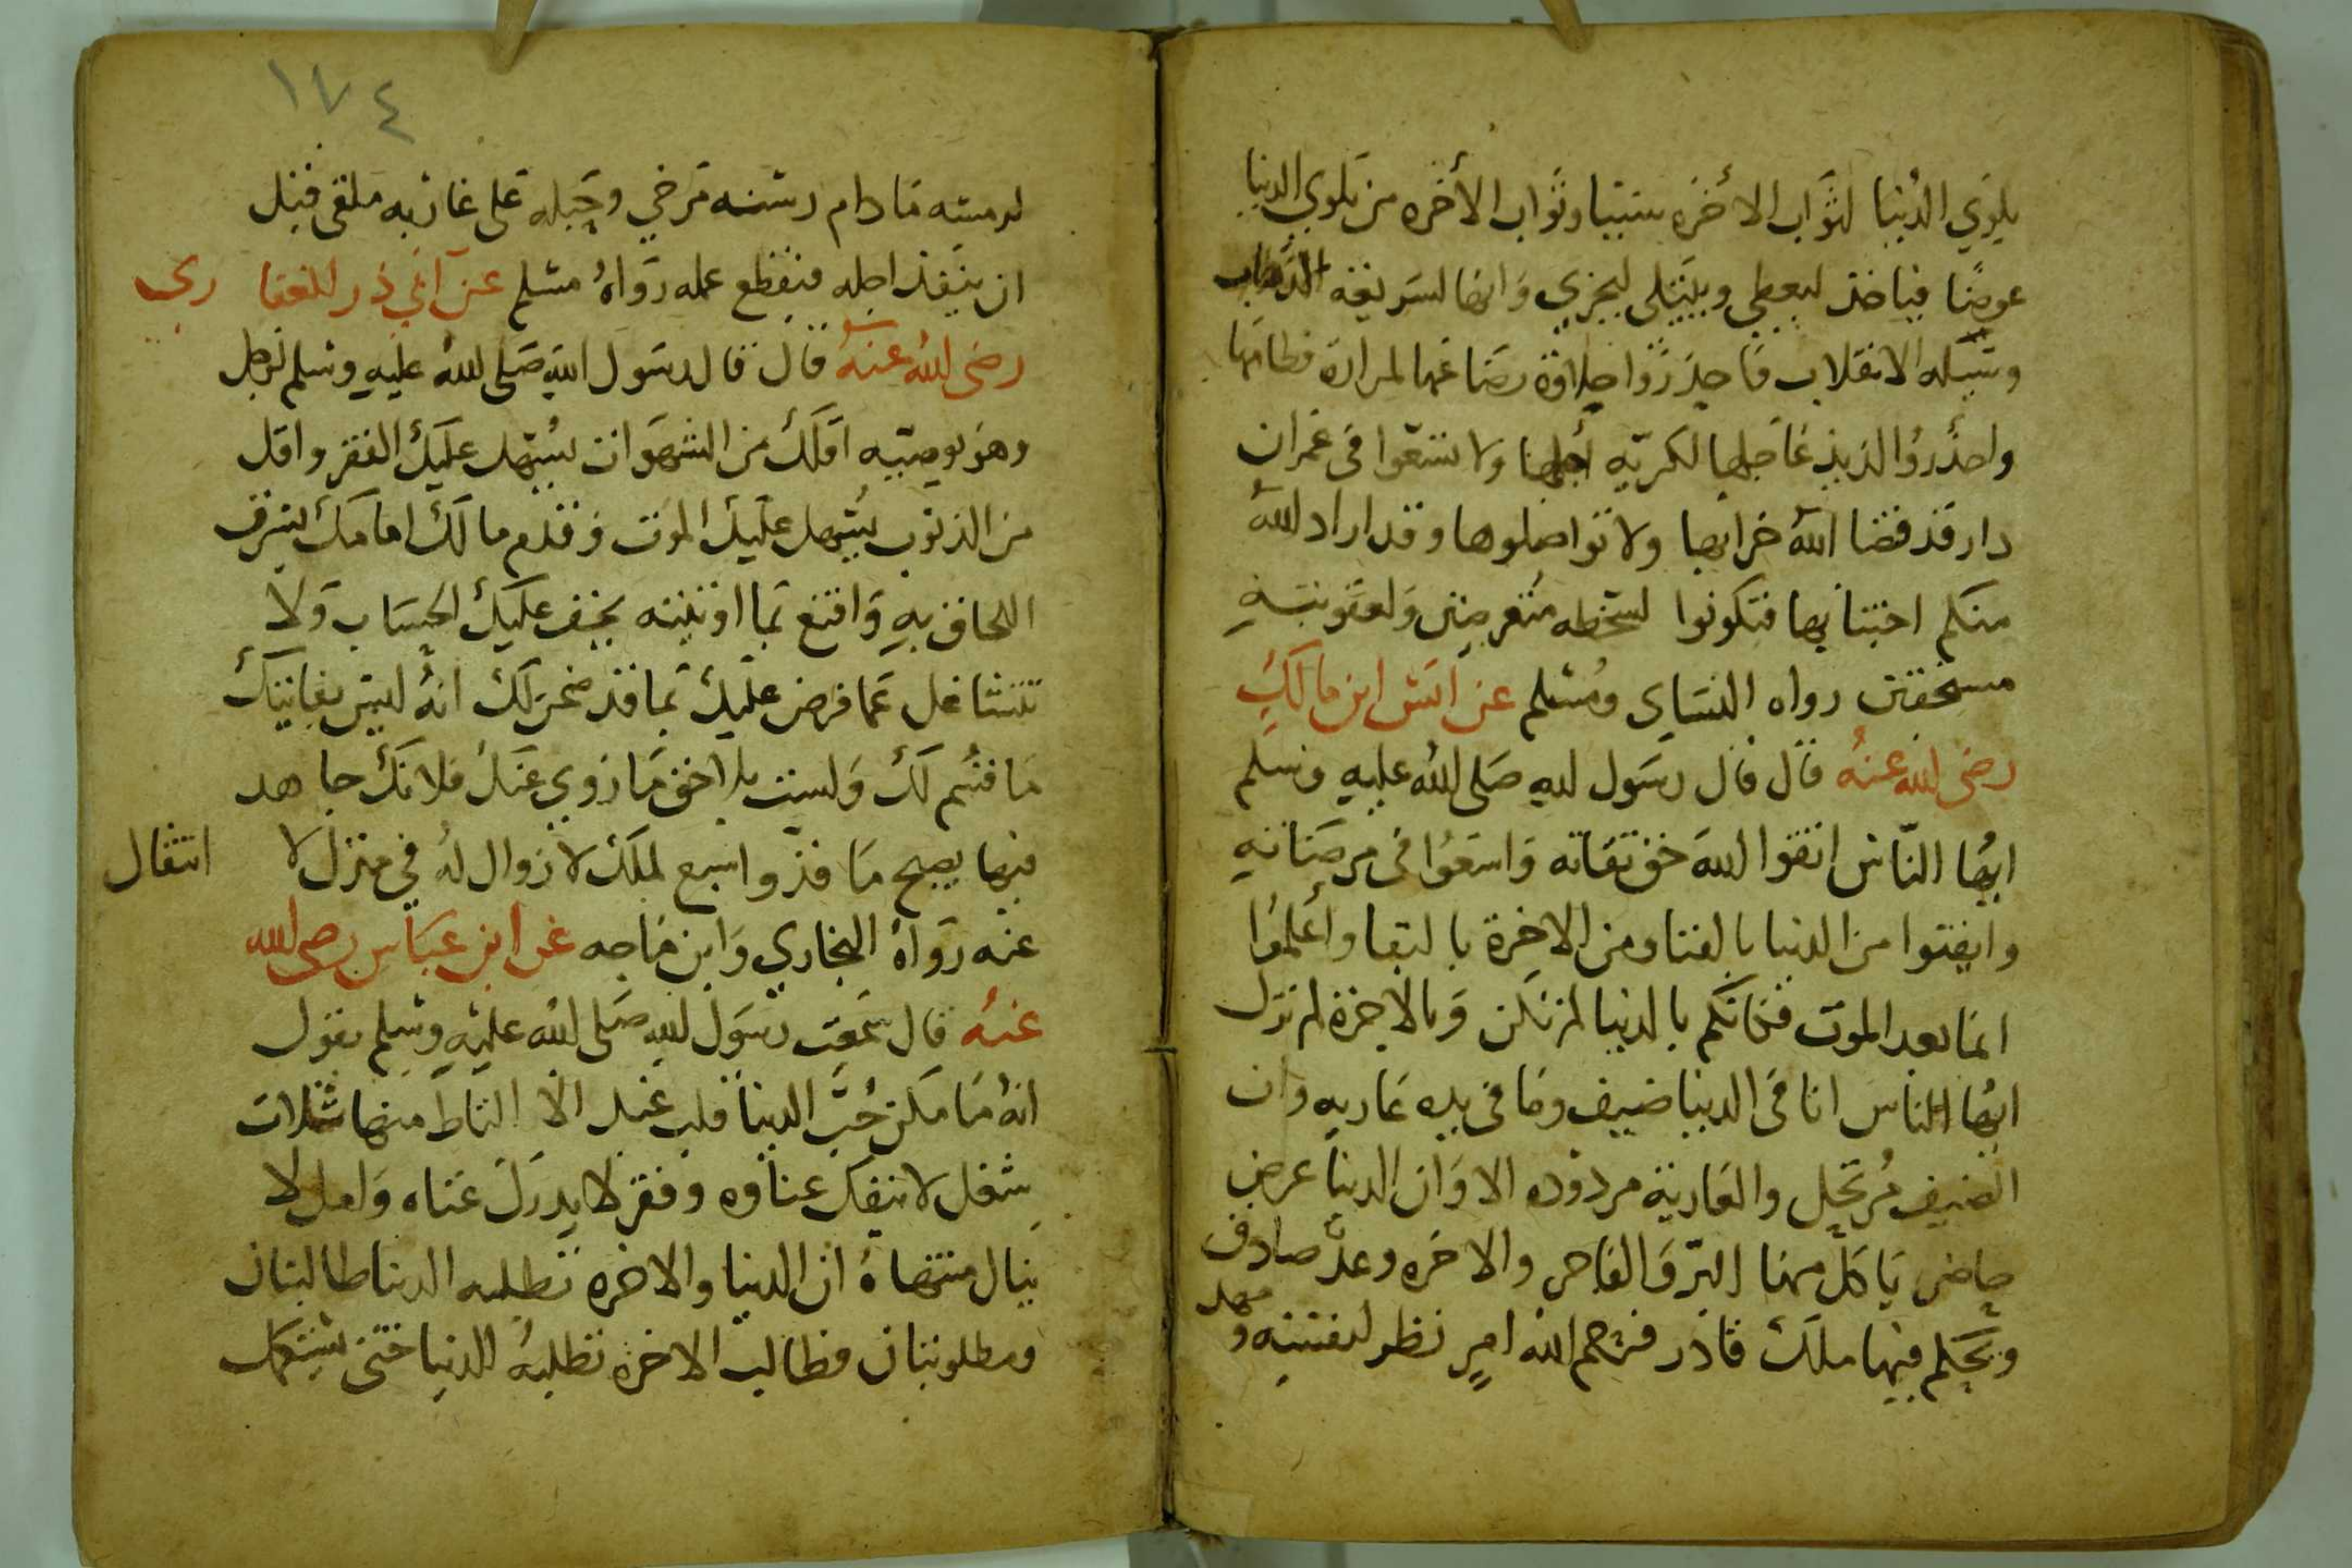 بلوي الدنيا لثواب الاخره سببا وثواب الأخره من بلوي الدنيا
عوضا فياخذ ليعطي ويبتلى ليجزي وانها لسريعه الذهاب
وشيكه الانقلاب فاحذروا حلاوة رضاعها لمرارة فطامها
واحذروا لذيذ عاجلها لكريه أجلها ولا تسعوا في عمران
دار قد قضا الله خرابها ولا تواصلوها وقد اراد الله
منكم اجتنابها فتكونوا لسخطه متعرضين ولعقوبته
مستحقين رواه النساى ومسلم عن انس ابن مالك
رضى الله عنه قال قال رسول الله صلى الله عليه وسلم
ايها الناس اتقوا الله حق تقاته واسعوا في مرضاته
وايقنوا من الدنيا بالفنا ومن الاخرة بالبقا وأعلموا
انما بعد الموت فكانكم بالدنيا لم تكن وبالاخرة لم تزل
ايها الناس انا في الدنيا ضيف وما في يده عاريه وان
الضيف مرتحل والعارية مردوده الا وان الدنيا عرض
حاضر ياكل منها البر والفاجر والاخره وعد صادق
ويحكم فيها ملك قادر فرحم الله امرٍ نظر لنفسه ومهد
١٧٤
لرمسه مادام رسنه مرخي وحبله على غاربه ملقى قبل
ان ينفذ اجله فينقطع عمله رواه مسلم عن ابي ذر الغفاري
رضى الله عنه قال قال رسول الله صلى الله عليه وسلم لرجل
وهو يوصيه اقلك من الشهوات يسهل عليك الفقر واقل
من الذنوب يسهل عليك الموت وقدم مالك امامك يسرك
اللحاق به واقنع بما اوتيته يخف عليك الحساب ولا
تتشاغل عما فرض عليك بما قد ضمن لك انه ليس بفائتك
ما قسم لك ولست بلاحق ما زوي عنك فلا تك جاهد
فيما يصبح نافذ واسع لملك لا زوال له في منزل لا انتقال
عنه رواه البخاري وابن ماجه عن ابن عباس رضى الله
عنه قال سمعت رسول الله صلى الله عليه وسلم يقول
انه ما سكن حب الدنيا قلب عبد الا التاط منها بثلاث
شغل لا ينفك عناوه وفقر لا يدرك غناه وامل لا
ينال منتهاه ان الدنيا والاخره تطلبه الدنيا طالبتان
ومطلوبتان فطالب الاخرة تطلبه الدنيا حتى يستكمل